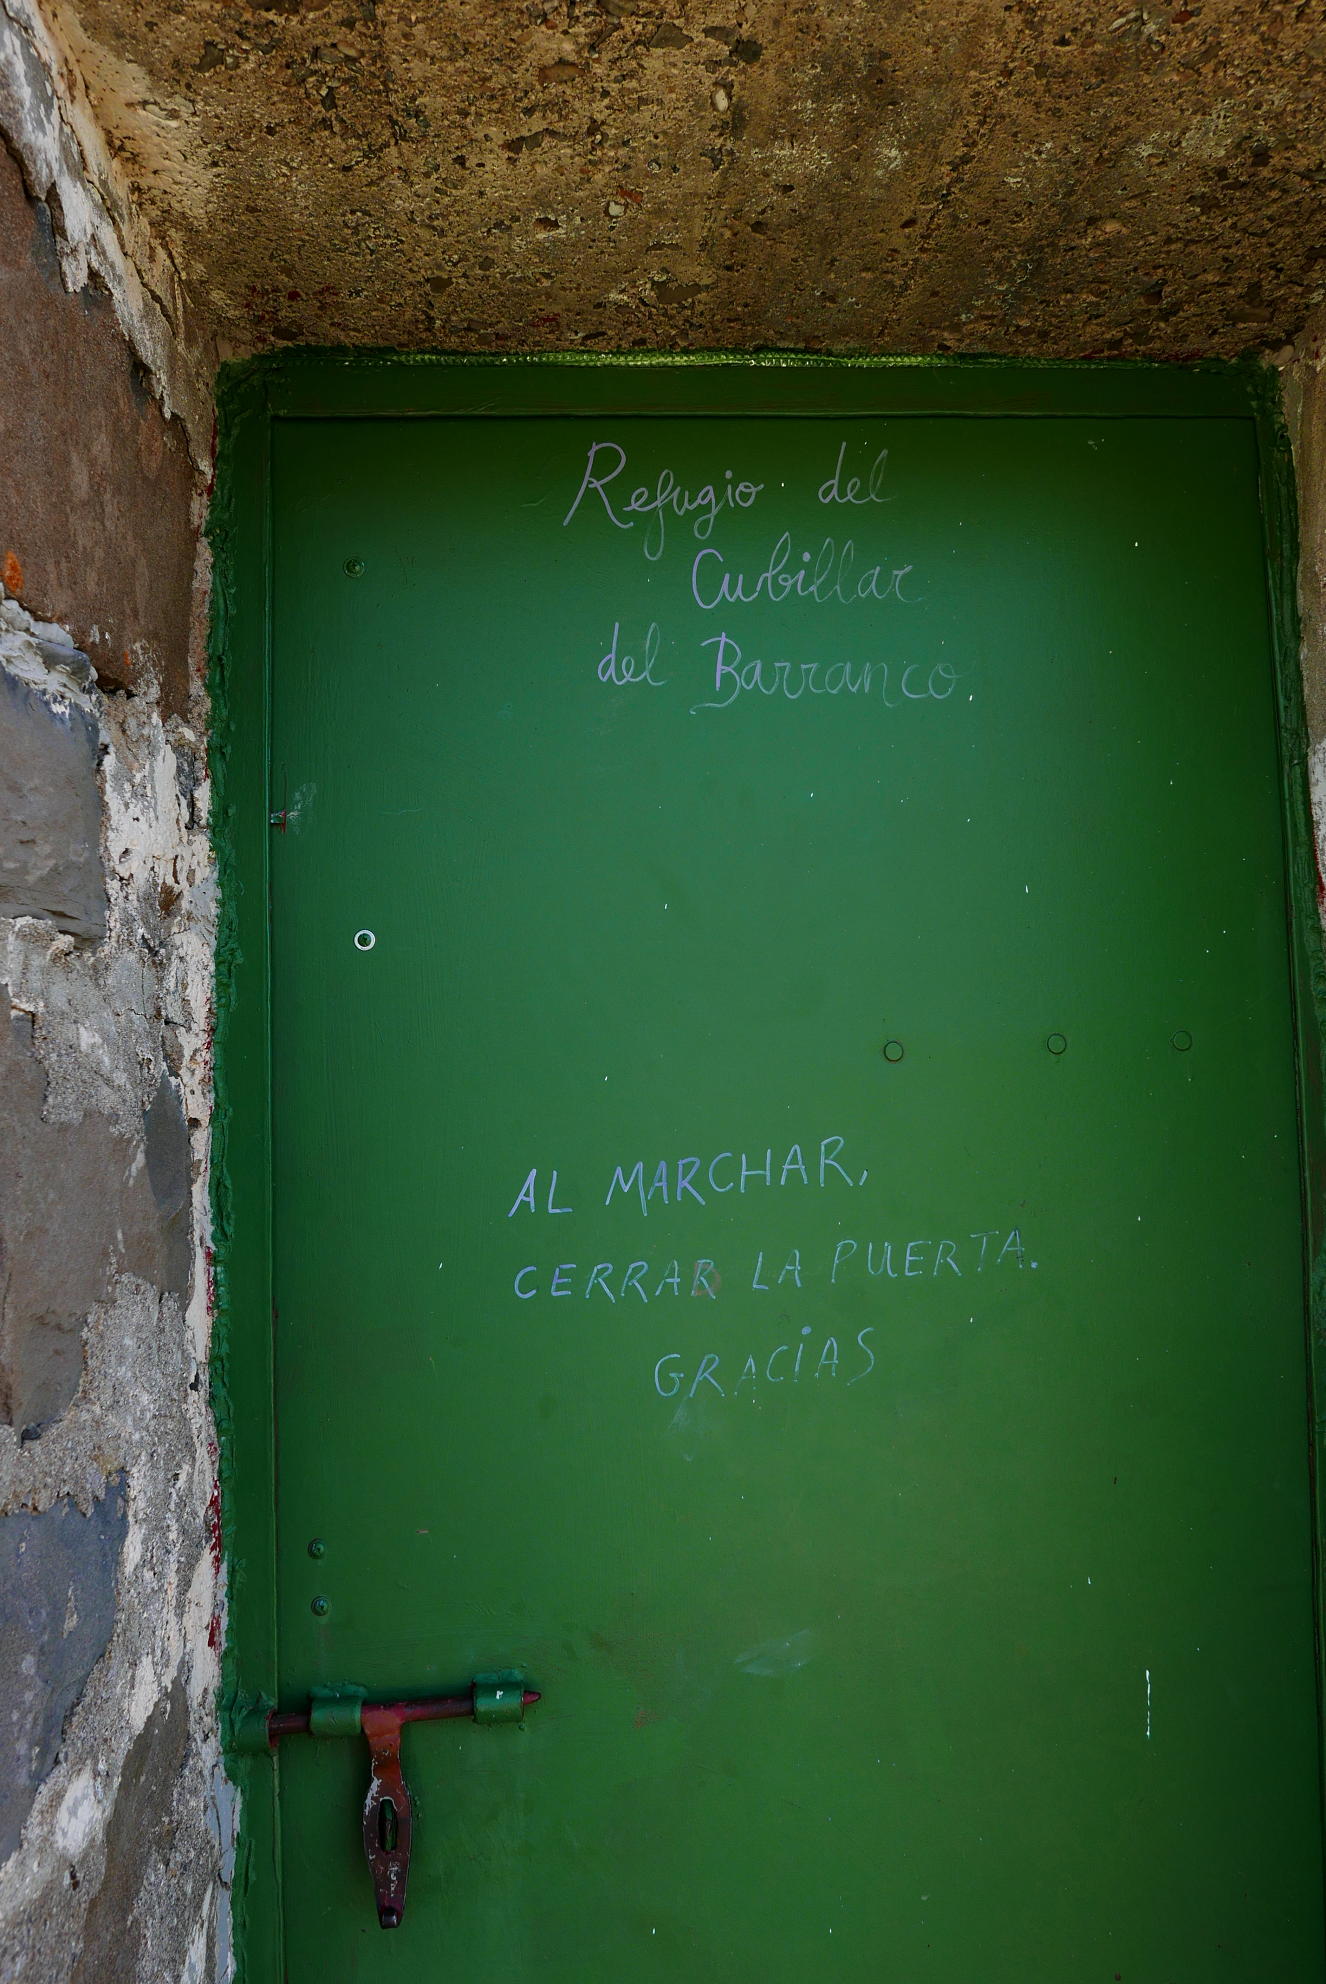 Refugio del
Cubillar
del Barranco
AL MARCHAR,
CERRAR LA PUERTA.
GRACiAS